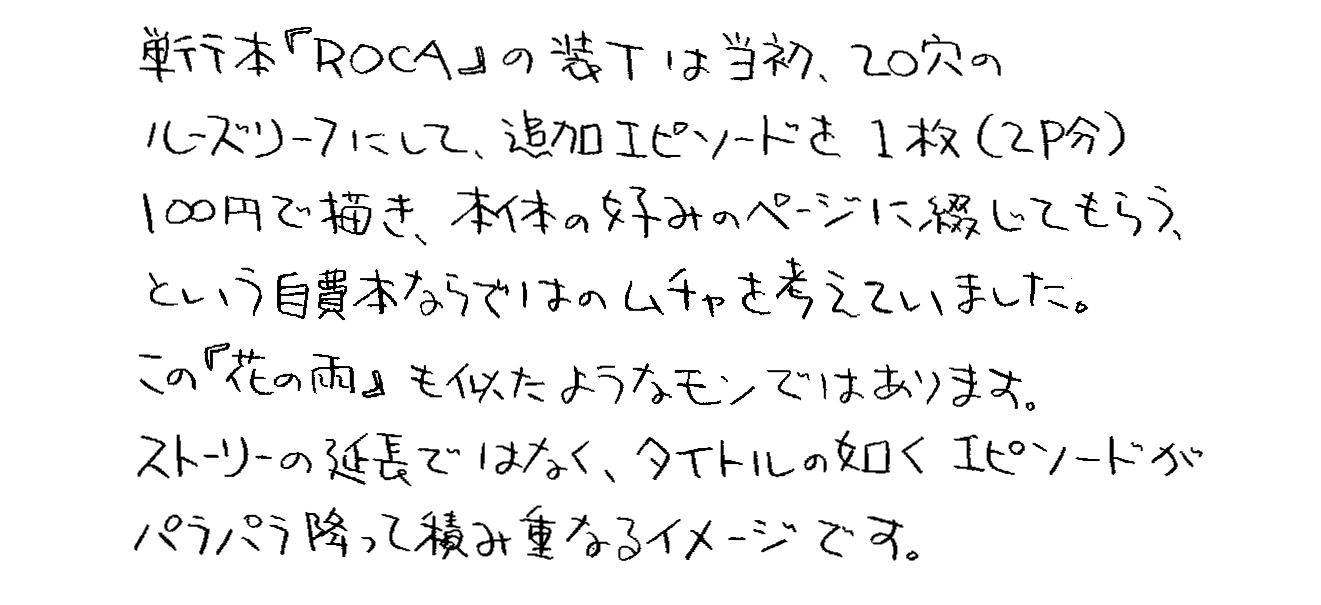 単行本『ROCA』の装丁は当初、20穴の
ルーズリーフにして、追加エピソードを1枚(2P分)
100円で描き、本体の好みのページに綴じてもらう、
という自費本ならではのムチャを考えていました。
この『花の雨』も似たようなモンではあります。
ストーリーの延長ではなく、タイトルの如くエピソードが
パラパラ降って積み重なるイメージです。